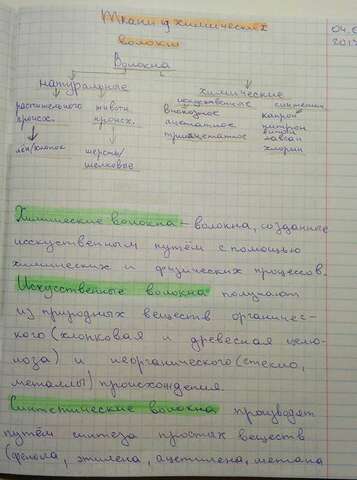 Ткани из химических
волокон
04.0
201
Волокна
натуральные химические
растительного животн. искусственные синтетич.
происх. происх. вискозное капрон
ацетатное нитрон
лён/хлопок шерсть/ триацетатное лавсан
шелковое хлорин
Химические волокна – волокна, созданные
исскуственным путём с помощью
химических и физических процессов.
Искусственные волокна получают
из природных веществ органичес-
кого (хлопковая и древесная целю-
лоза) и неорганического (стекло,
металлы) происхождения
Синтетические волокна производят
путём синтеза простых веществ
(фенола, этилена, ацетилена, метана